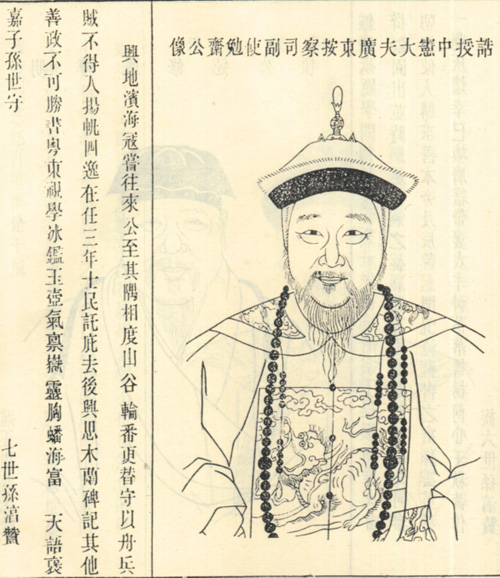 誥授中憲大夫廣東按察司副使勉齋公像
興地濱海寇嘗往來公至其隅相度山谷輪番更替守以舟兵
賊不得人揚帆四逸在任三年士民託庇去後興思木南碑記其他
善政不可勝書粵東視學冰鑑玉壺氣稟嶽靈胸蟠海富 天語褒
嘉子孫世守
七世孫 贊